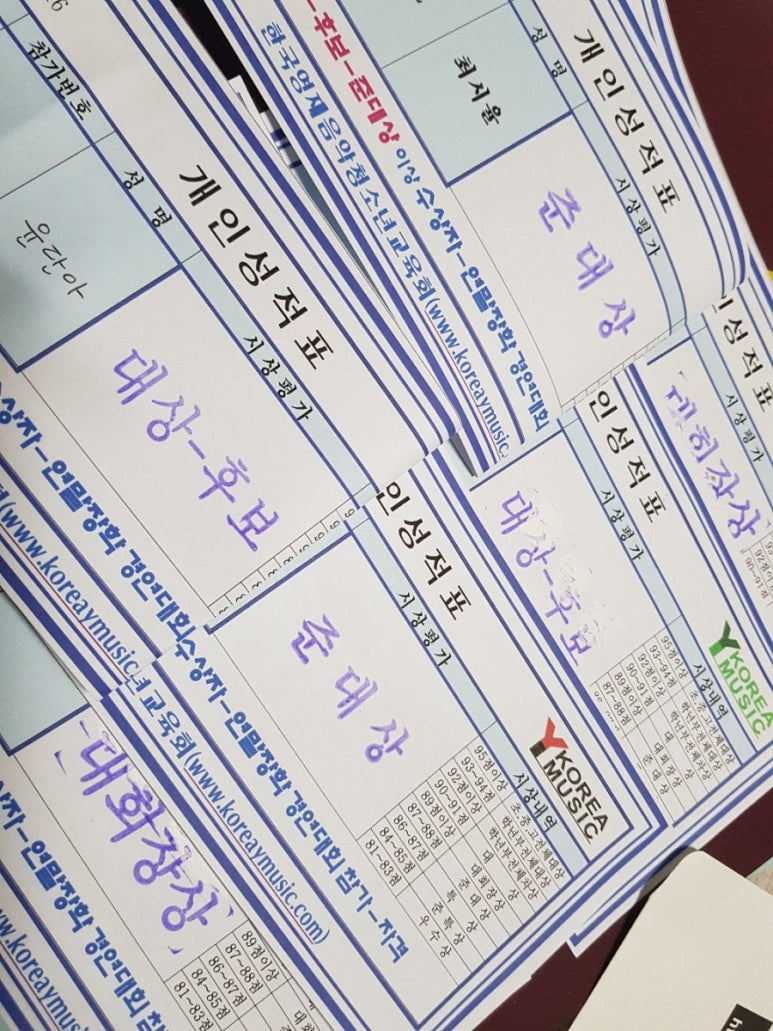 참가번호
성 명
윤란아
개인성적표
시상평가
대상-후보
수상자-연말장학 경연대회
(www.koreaymusic.
성 명
최시율
개인성적표
시상평가
준대상
-후보-준대상 이상 수상자-연말장학 경연대회
한국영재음악청소년교육회(www.koreaymusic.
인성적표
시상평가
대회장상
92점이
90~91점
인성적표
시상평가
대상-후보
Y KOREA MUSIC
시상내역
95점이상 초.중.고전체대상
93~94점 학년부전체대상
92점이상 학년부전체차상
90~91점 대 상
89점이상 대회장상
87~88점 준 대 상
인성적표
시상평가
준대상
Y KOREA MUSIC
시상내역
95점이상 초.중.고전체대상
93~94점 학년부전체대상
92점이상 학년부전체차상
90~91점 대 상
89점이상 대회장상
87~88점 준 대 상
86~87점 특 상
84~85점 준 특 상
81~83점 우 수 상
수상자-연말장학 경연대회 참가-자격
교육회(www.koreaymusic.com)
대회장상
89점이상
87~88점
86~87점
84~85점
81~83점
상자-연말장학 경연대회 참
www.koreaymus